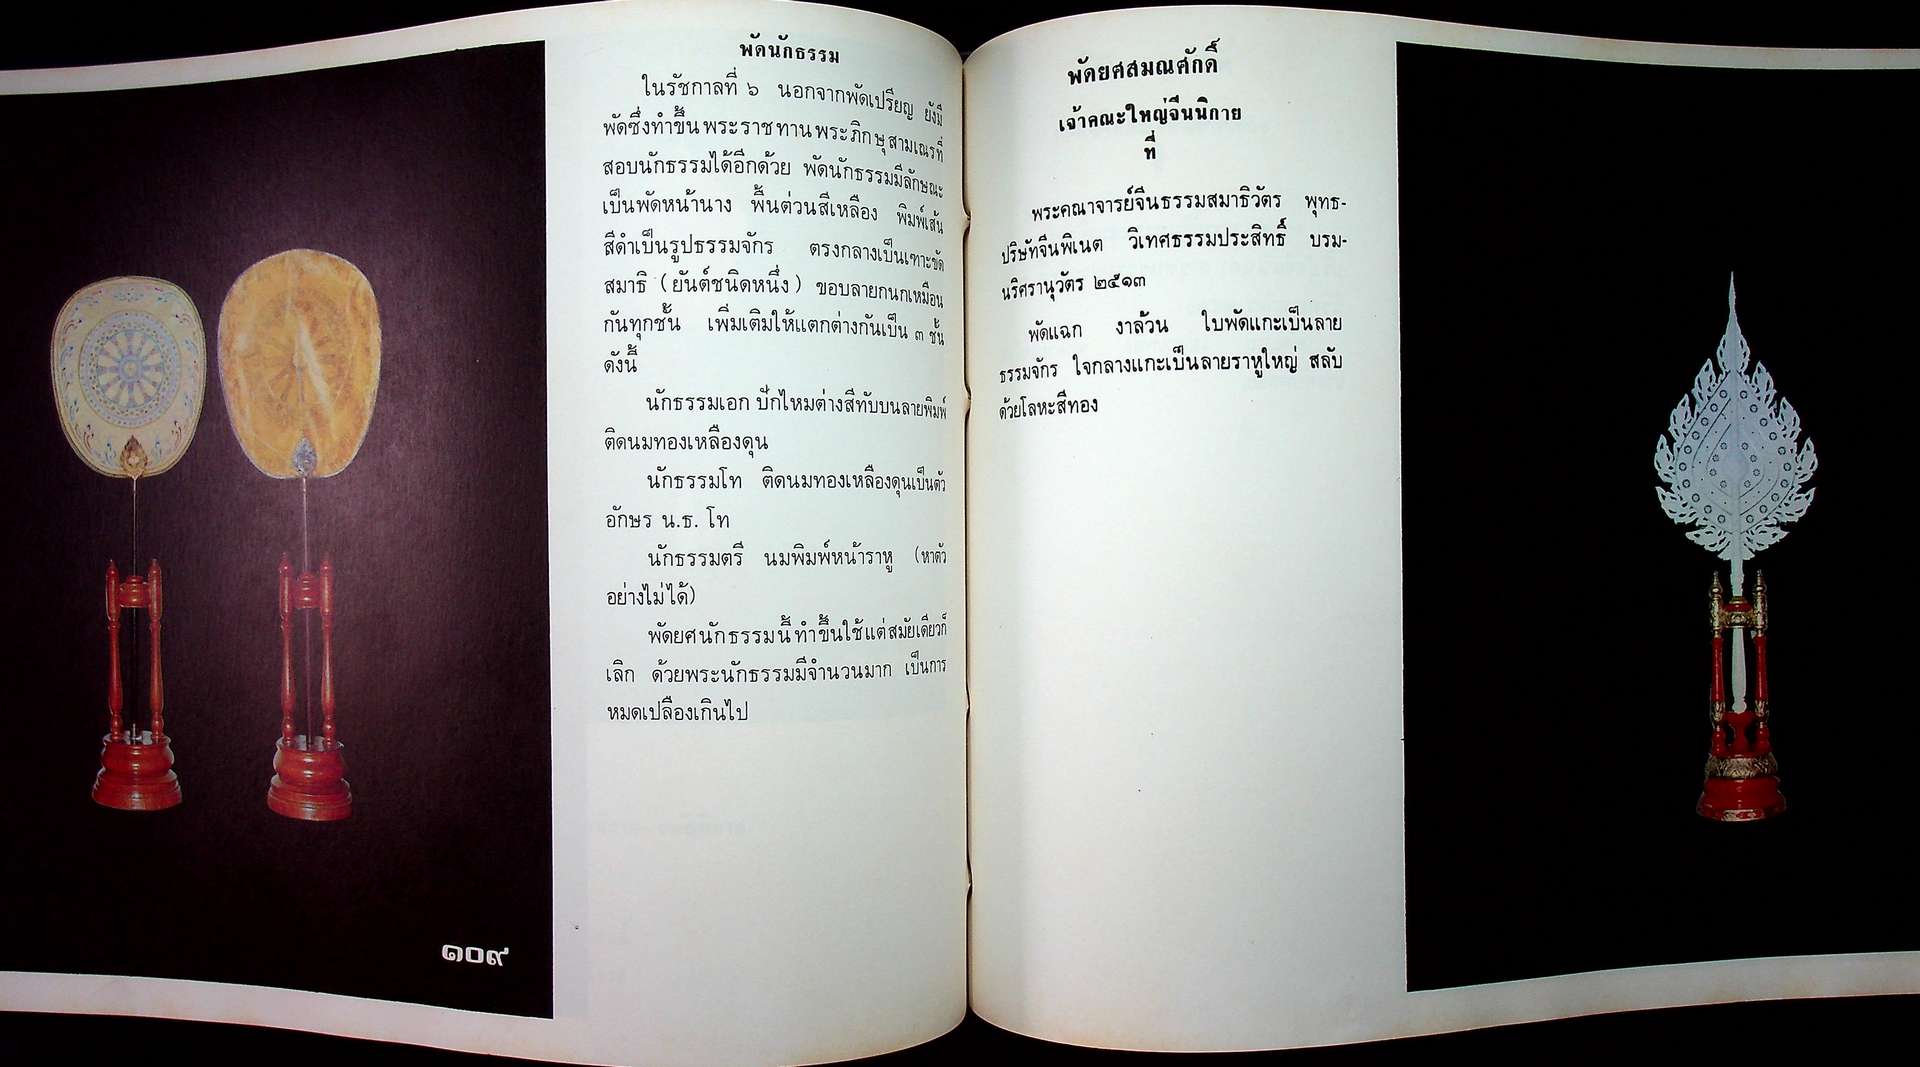 พัดนักธรรม
ในรัชกาลที่ ๖ นอกจากพัดเปรียญ ยังมี
พัดซึ่งทำขึ้นพระราชทานพระภิกษุสามเณรที่
สอบนักธรรมได้อีกด้วย พัดนักธรรมมีลักษณะ
เป็นพัดหน้านาง พื้นต่วนสีเหลือง พิมพ์เส้น
สีดำเป็นรูปธรรมจักร ตรงกลางเป็นเฑาะขัด
สมาธิ (ยันต์ชนิดหนึ่ง) ขอบลายกนกเหมือน
กันทุกชั้น เพิ่มเติมให้แตกต่างกันเป็น ๓ ชั้น
ดังนี้
นักธรรมเอก ปักไหมต่างสีทับบนลายพิมพ์
ติดนมทองเหลืองดุน
นักธรรมโท ติดนมทองเหลืองดุนเป็นตัว
อักษร น.ธ. โท
นักธรรมตรี นมพิมพ์หน้าราหู (หาตัว
อย่างไม่ได้)
พัดยศนักธรรมนี้ ทำขึ้นใช้แต่สมัยเดียวก็
เลิก ด้วยพระนักธรรมมีจำนวนมาก เป็นการ
หมดเปลืองเกินไป
๑๐๙
พัดยศสมณศักดิ์
เจ้าคณะใหญ่จีนนิกาย
ที่
พระคณาจารย์จีนธรรมสมาธิวัตร พุทธ-
ปริษัทจีนพิเนต วิเทศธรรมประสิทธิ์ บรม-
นริศรานุวัตร ๒๕๑๓
พัดแฉก งาล้วน ใบพัดแกะเป็นลาย
ธรรมจักร ใจกลางแกะเป็นลายราหูใหญ่ สลับ
ด้วยโลหะสีทอง